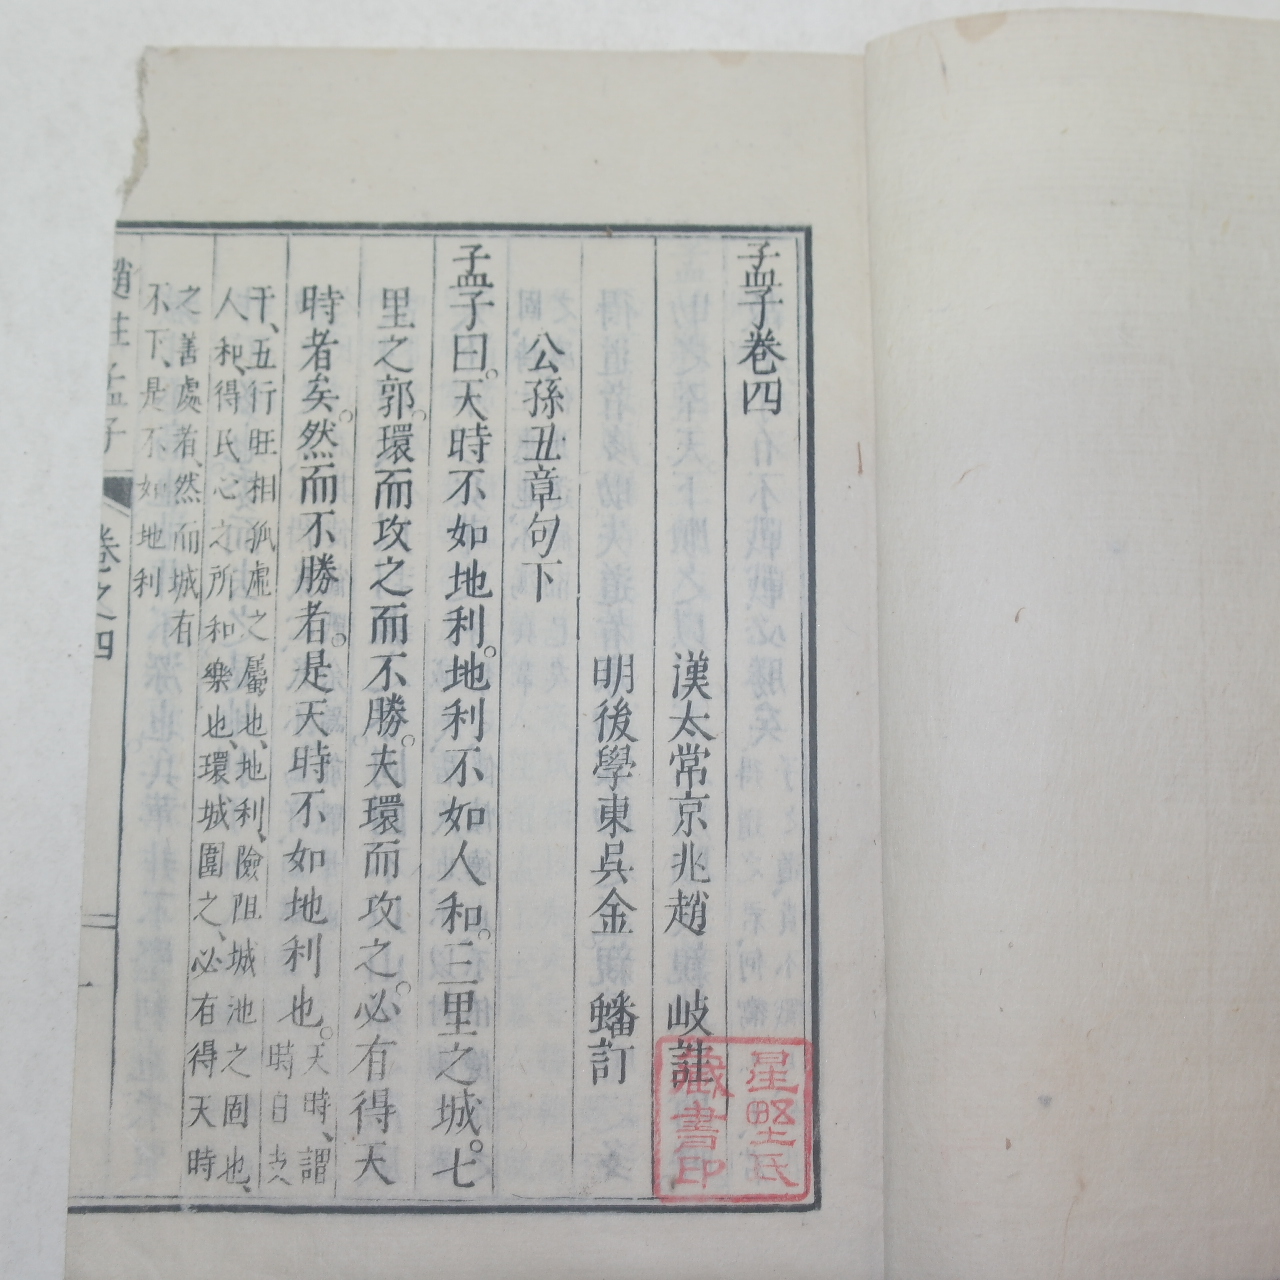 孟子卷四
漢太常京兆趙 岐註
明後學東吳金 蟠訂
公孫丑章句下
孟子曰。天時不如地利。地利不如人和。三里之城。七
里之郭。環而攻之而不勝。夫環而攻之。必有得天
時者矣。然而不勝者。是天時不如地利也。天時、謂
時日支
干、五行旺相孤虛之屬也、地利、險阻城池之固也、
人和、得民心之所和樂也、環城圍之、必有得天時
之善處者、然而城有
不下、是不如地利
趙註孟子
卷之四
一
星野氏
藏書印